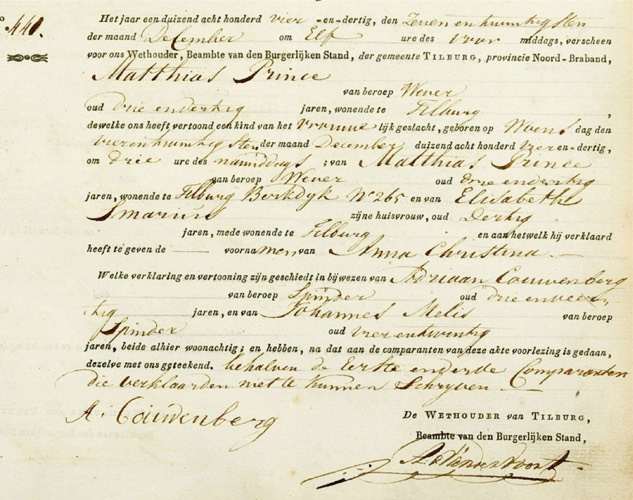 No 440.
Het jaar een duizend acht honderd vier-en-dertig, den Zeven en twintigsten
der maand December om Elf ure des Voor middags, verscheen
voor ons Wethouder, Beambte van den Burgerlijken Stand, der gemeente TILBURG, provincie Noord-Braband,
Matthias Prince
van beroep Wever
oud drie en dertig jaren, wonende te Tilburg
dewelke ons heeft vertoond een kind van het vrouwe lijk geslacht, geboren op Woens dag den
vier en twintigsten, der maand December duizend acht honderd vier en-dertig,
om drie ure des namiddags; van Matthias Prince
van beroep Wever oud drie en dertig
jaren, wonende te Tilburg Berkdyk No 265 en van Elisabeth
Smarius zijne huisvrouw, oud Dertig
jaren, mede wonende te Tilburg en aan hetwelk hij verklaard
heeft te geven de voornamen van Anna Christina
Welke verklaring en vertooning zijn geschiedt in bijwezen van Adriaan Couwenberg
van beroep Spinder oud drie en veer-
tig jaren, en van Johannes Melis van beroep
Spinder oud vier en twintig
jaren, beide alhier woonachtig; en hebben, na dat aan de comparanten van deze akte voorlezing is gedaan,
dezelve met ons geteekend. behalven de Eerste en derde Comparanten
die verklaarden niet te kunnen Schryven
A: Couwenberg
DE WETHOUDER VAN TILBURG,
Beambte van den Burgerlijken Stand,